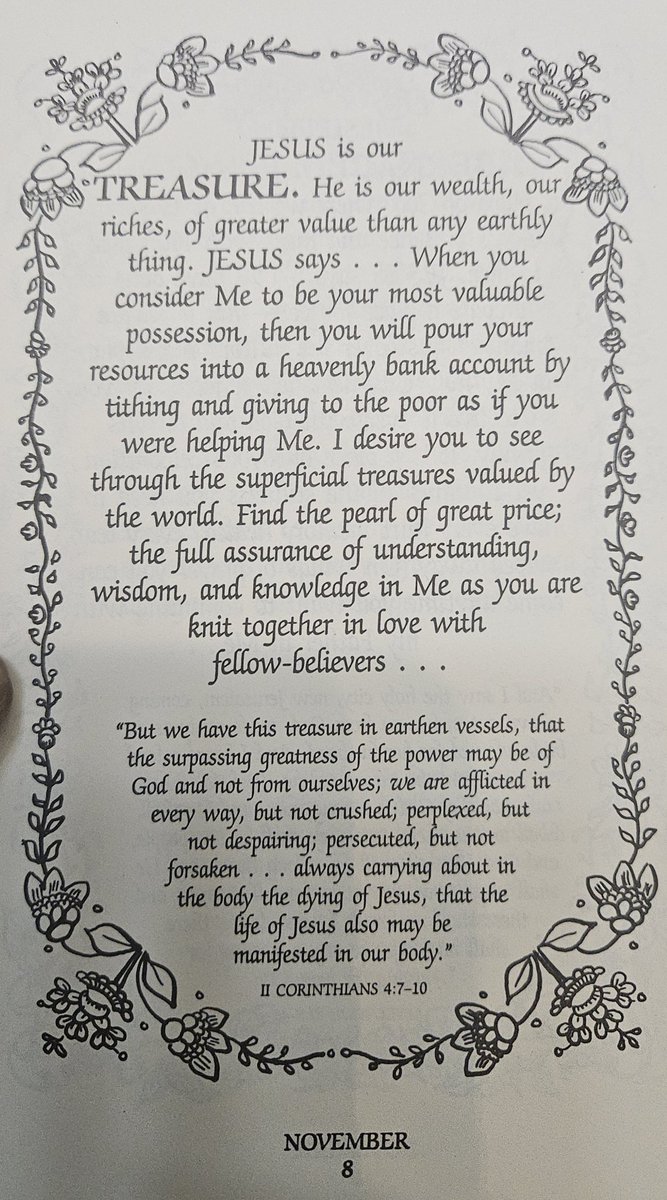 JESUS is our
TREASURE. He is our wealth, our
riches, of greater value than any earthly
thing. JESUS says . . . When you
consider Me to be your most valuable
possession, then you will pour your
resources into a heavenly bank account by
tithing and giving to the poor as if you
were helping Me. I desire you to see
through the superficial treasures valued by
the world. Find the pearl of great price;
the full assurance of understanding,
wisdom, and knowledge in Me as you are
knit together in love with
fellow-believers . . .
"But we have this treasure in earthen vessels, that
the surpassing greatness of the power may be of
God and not from ourselves; we are afflicted in
every way, but not crushed; perplexed, but
not despairing; persecuted, but not
forsaken . . . always carrying about in
the body the dying of Jesus, that the
life of Jesus also may be
manifested in our body."
II CORINTHIANS 4:7–10
NOVEMBER
8